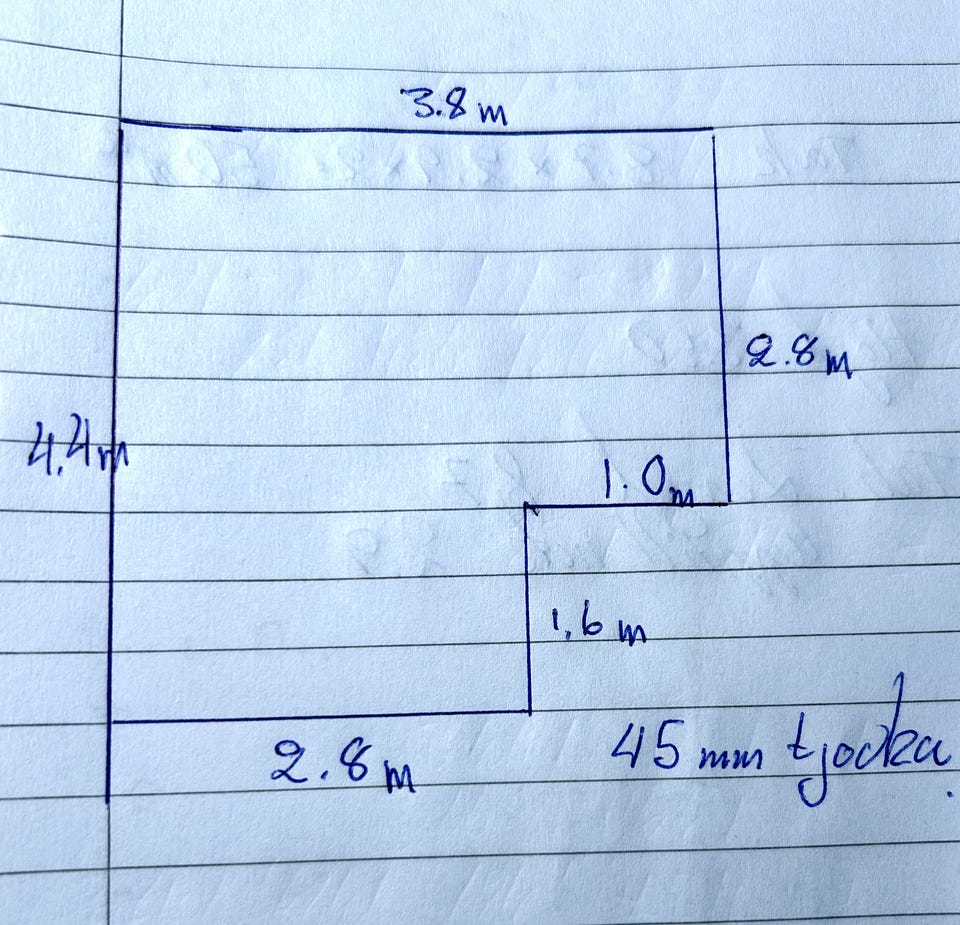 3.8 m
2.8 m
4.4 m
1.0 m
1.6 m
2.8 m
45 mm tjocka.